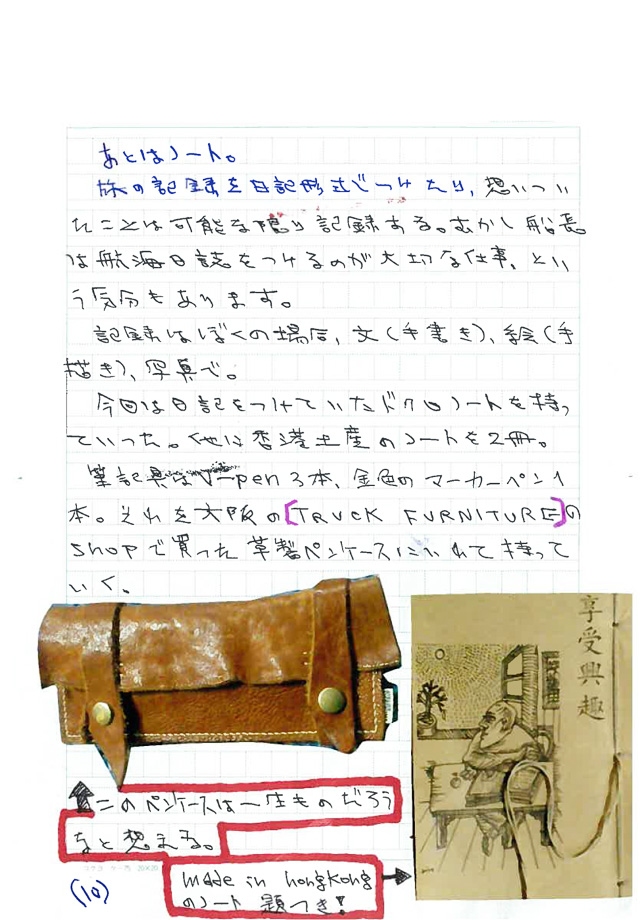 あとはノート。
旅の記録を日記形式でつけたり、想いつい
たことは可能な限り記録する。むかし船長
は航海日誌をつけるのが大切な仕事、とい
う気分もあります。
記録はぼくの場合、文(手書き)、絵(手
描き)、写真で。
今回は日記をつけていたドクロノートを持っ
ていった。他は香港土産のノートを2冊。
筆記具はVーpen 3本、金色のマーカーペン1
本。それを大阪の[TRUCK FURNITURE]の
shopで買った革製ペンケースにいれて持って
いく。
享受興趣
↑このペンケースは一生ものだろう
なと想える。
made in hongkong →
のノート 題つき!
(10)